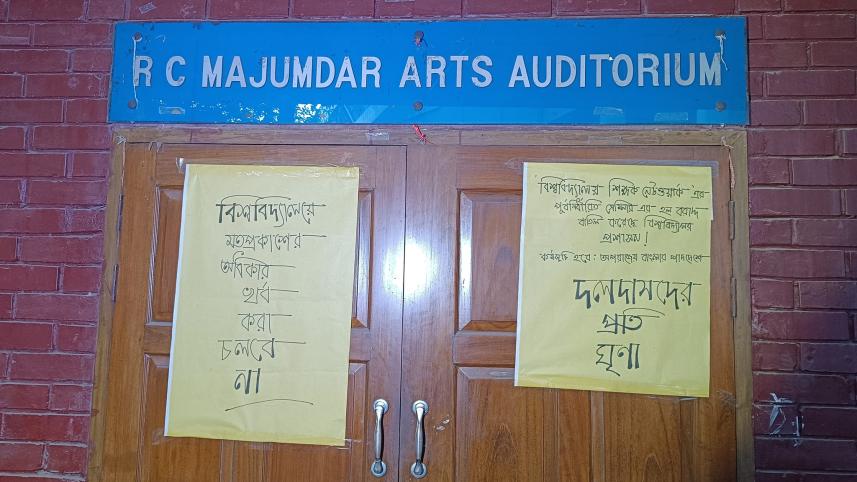 R C MAJUMDAR ARTS AUDITORIUM
বিশ্ববিদ্যালয়ে
মতপ্রকাশের
অধিকার
খর্ব
করা
চলবে
না
বিশ্ববিদ্যালয় শিক্ষক নেটওয়ার্ক এর
পূর্বনির্ধারিত সেমিনার এর হল বরাদ্দ
বাতিল করেছে বিশ্ববিদ্যালয়
প্রশাসন!
কর্মসূচি হবে: অপরাজেয় বাংলার পাদদেশে
দলদাসদের
প্রতি
ঘৃনা